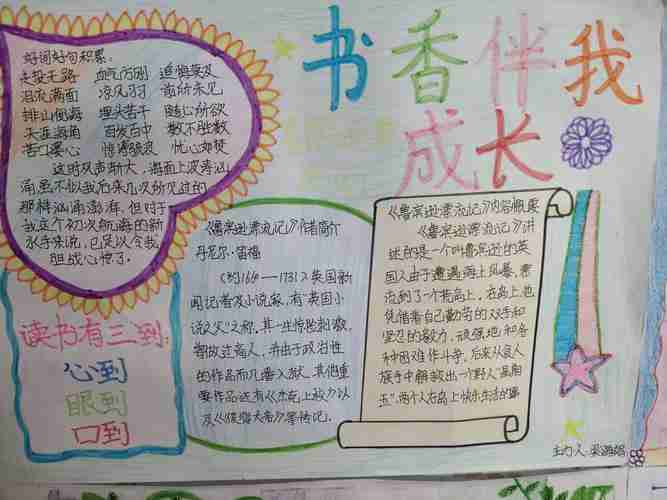 书香伴我
成长
好词好句积累:
走投无路 血气方刚 追悔莫及
泪流满面 凉风习习 前所未见
排山倒海 埋头苦干 随心所欲
天涯海角 百发百中 数不胜数
苦口婆心 惊涛骇浪 忧心如焚
这时风声渐大,海面上波涛汹
涌虽不似我后来几次所见过的
那样汹涌澎湃,但对于
我这个初次航海的新
水手来说,已足以令我
胆战心惊了。
读书有三到:
心到
眼到
口到
《鲁宾逊漂流记》作者简介
丹尼尔·笛福
英国新
闻记者及小说家,有“英国小
说之父”之称,其一生惊险刺激,
智勇过常人,并由于政治性
的作品而几番入狱,其他重
要作品还有以
及等传记。
《鲁宾逊漂流记》内容概要
《鲁宾逊漂流记》讲
述的是一个叫鲁宾逊的英
国人由于遭遇海上风暴,漂
流到了一个荒岛上,在岛上,他
凭借着自己勤劳的双手和
坚忍的毅力,顽强地和各
种困难作斗争,后来从食人
族手中解救出一个野人“星期
五”,两个人在岛上快乐生活的事
主办人